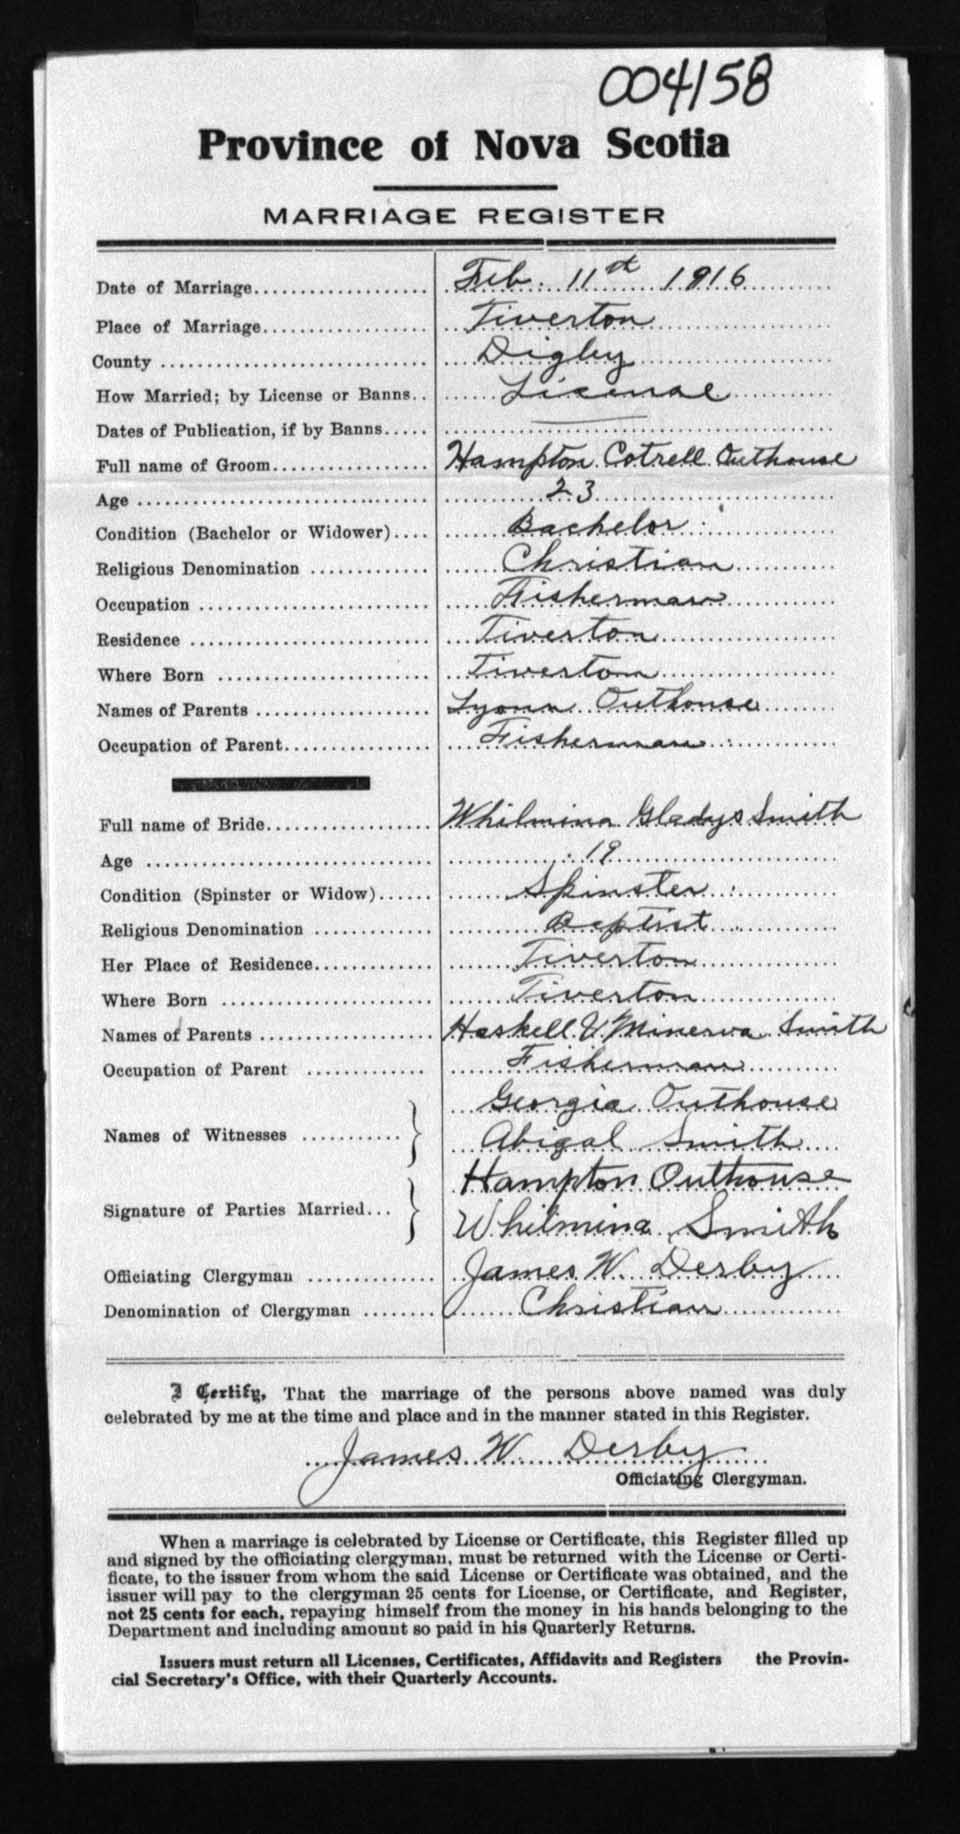 004158
Province of Nova Scotia
MARRIAGE REGISTER
Date of Marriage Feb. 11th 1916
Place of Marriage Tiverton
County Digby
How Married; by License or Banns License
Dates of Publication, if by Banns
Full name of Groom Hampton Cotrell Outhouse
Age 23
Condition (Bachelor or Widower) Bachelor
Religious Denomination Christian
Occupation Fisherman
Residence Tiverton
Where Born Tiverton
Names of Parents Outhouse
Occupation of Parent Fisherman
Full name of Bride Whilmina Gladys Smith
Age 19
Condition (Spinster or Widow) Spinster
Religious Denomination Baptist
Her Place of Residence Tiverton
Where Born Tiverton
Names of Parents Haskell V. Minerva Smith
Occupation of Parent Fisherman
Names of Witnesses Georgia Outhouse
Abigal Smith
Signature of Parties Married Hampton Outhouse
Whilmina Smith
Officiating Clergyman James W. Derby
Denomination of Clergyman Christian
I Certify, That the marriage of the persons above named was duly
celebrated by me at the time and place and in the manner stated in this Register.
James W. Derby
Officiating Clergyman.
When a marriage is celebrated by License or Certificate, this Register filled up
and signed by the officiating clergyman, must be returned with the License or Certi-
ficate, to the issuer from whom the said License or Certificate was obtained, and the
issuer will pay to the clergyman 25 cents for License, or Certificate, and Register,
not 25 cents for each, repaying himself from the money in his hands belonging to the
Department and including amount so paid in his Quarterly Returns.
Issuers must return all Licenses, Certificates, Affidavits and Registers the Provin-
cial Secretary's Office, with their Quarterly Accounts.